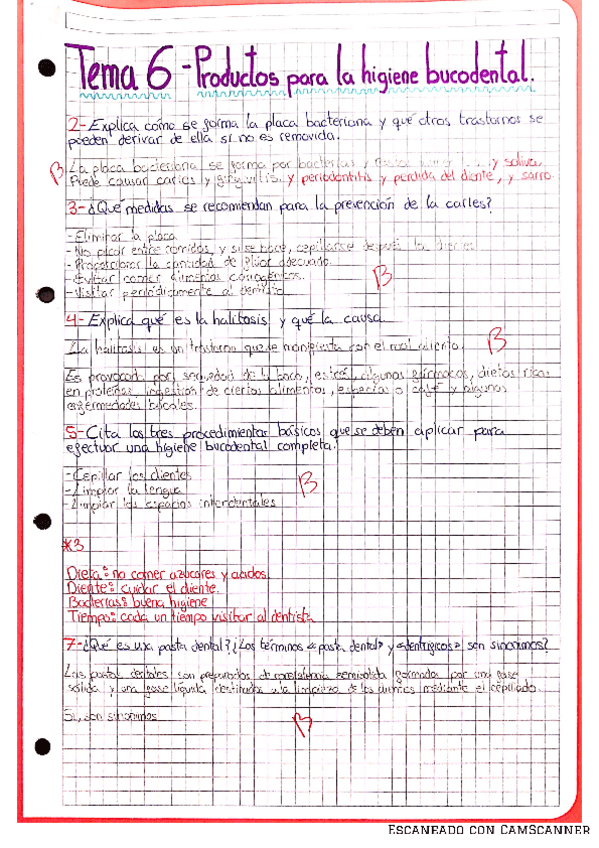 Tema 6 - Productos para la higiene bucodental.
2- Explica cómo se forma la placa bacteriana y qué otros trastornos se
pueden derivar de ella si no es removida.
La placa bacteriana se forma por bacterias y y saliva.
B Puede causar caries y gingivitis. y periodontitis y perdida del diente, y sarro.
3- ¿Qué medidas se recomiendan para la prevención de la caries?
- Eliminar la placa
- No picar entre comidas, y si se hace, cepillarse después los dientes
- Proporcionar la cantidad de flúor adecuado.
- Evitar comer alimentos cariogénicos.
- Visitar periódicamente al dentista
B
4- Explica qué es la halitosis y qué la causa.
La halitosis es un trastorno que se manifiesta con el mal aliento.
B
Es provocada por sequedad de la boca, estrés, algunos fármacos, dietas ricas
en proteínas, ingestión de ciertos alimentos, especias o café y algunas
enfermedades bucales.
5- Cita los tres procedimientos básicos que se deben aplicar para
efectuar una higiene bucodental completa.
- Cepillar los dientes
- Limpiar la lengua
- Limpiar los espacios interdentales
B
*3
Dieta: no comer azúcares y acidos.
Diente: cuidar el diente.
Bacterias: buena higiene
Tiempo: cada un tiempo visitar al dentista
7- ¿Qué es una pasta dental? ¿Los términos «pasta dental» y «dentífricos» son sinónimos?
Las pastas dentales son preparados de consistencia semisólida formados por una base
sólida y una base líquida destinados a la limpieza de los dientes mediante el cepillado.
Si, son sinonimos
B
ESCANEADO CON CAMSCANNER